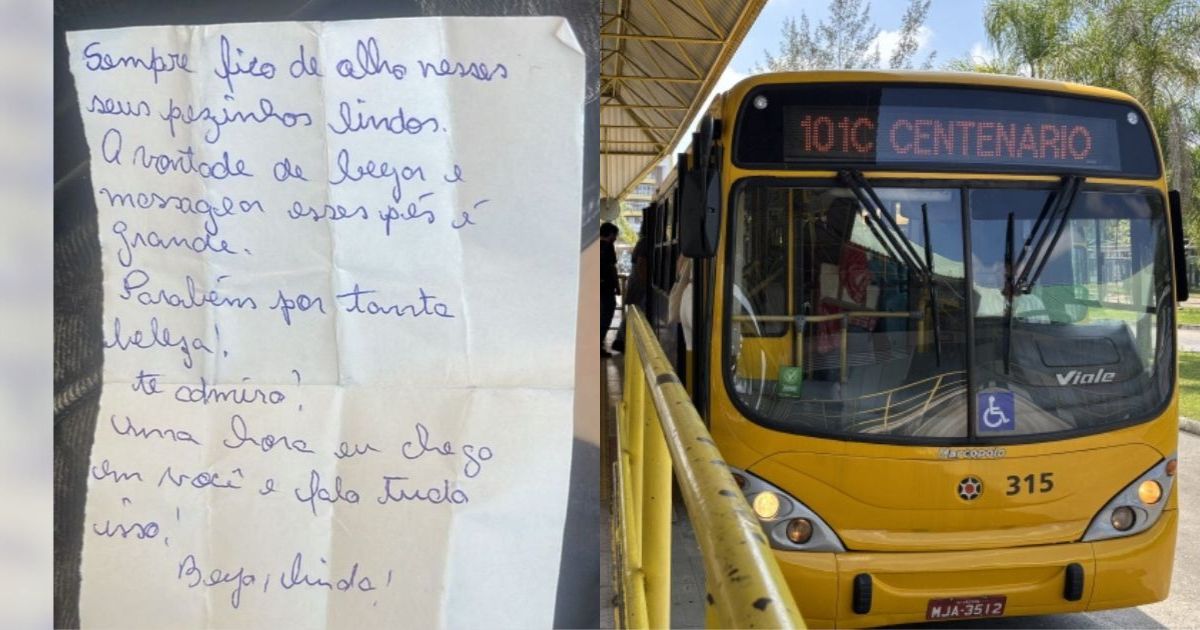 Sempre fico de olho nesses
seus pezinhos lindos.
A vontade de beijar e
massagear esses pés é
grande.
Parabéns por tanta
beleza!
te admiro!
uma hora eu chego
em você e falo tudo
isso!
Beijo, linda!
101C CENTENARIO
Viale
Marcopolo
315
MJA-3512